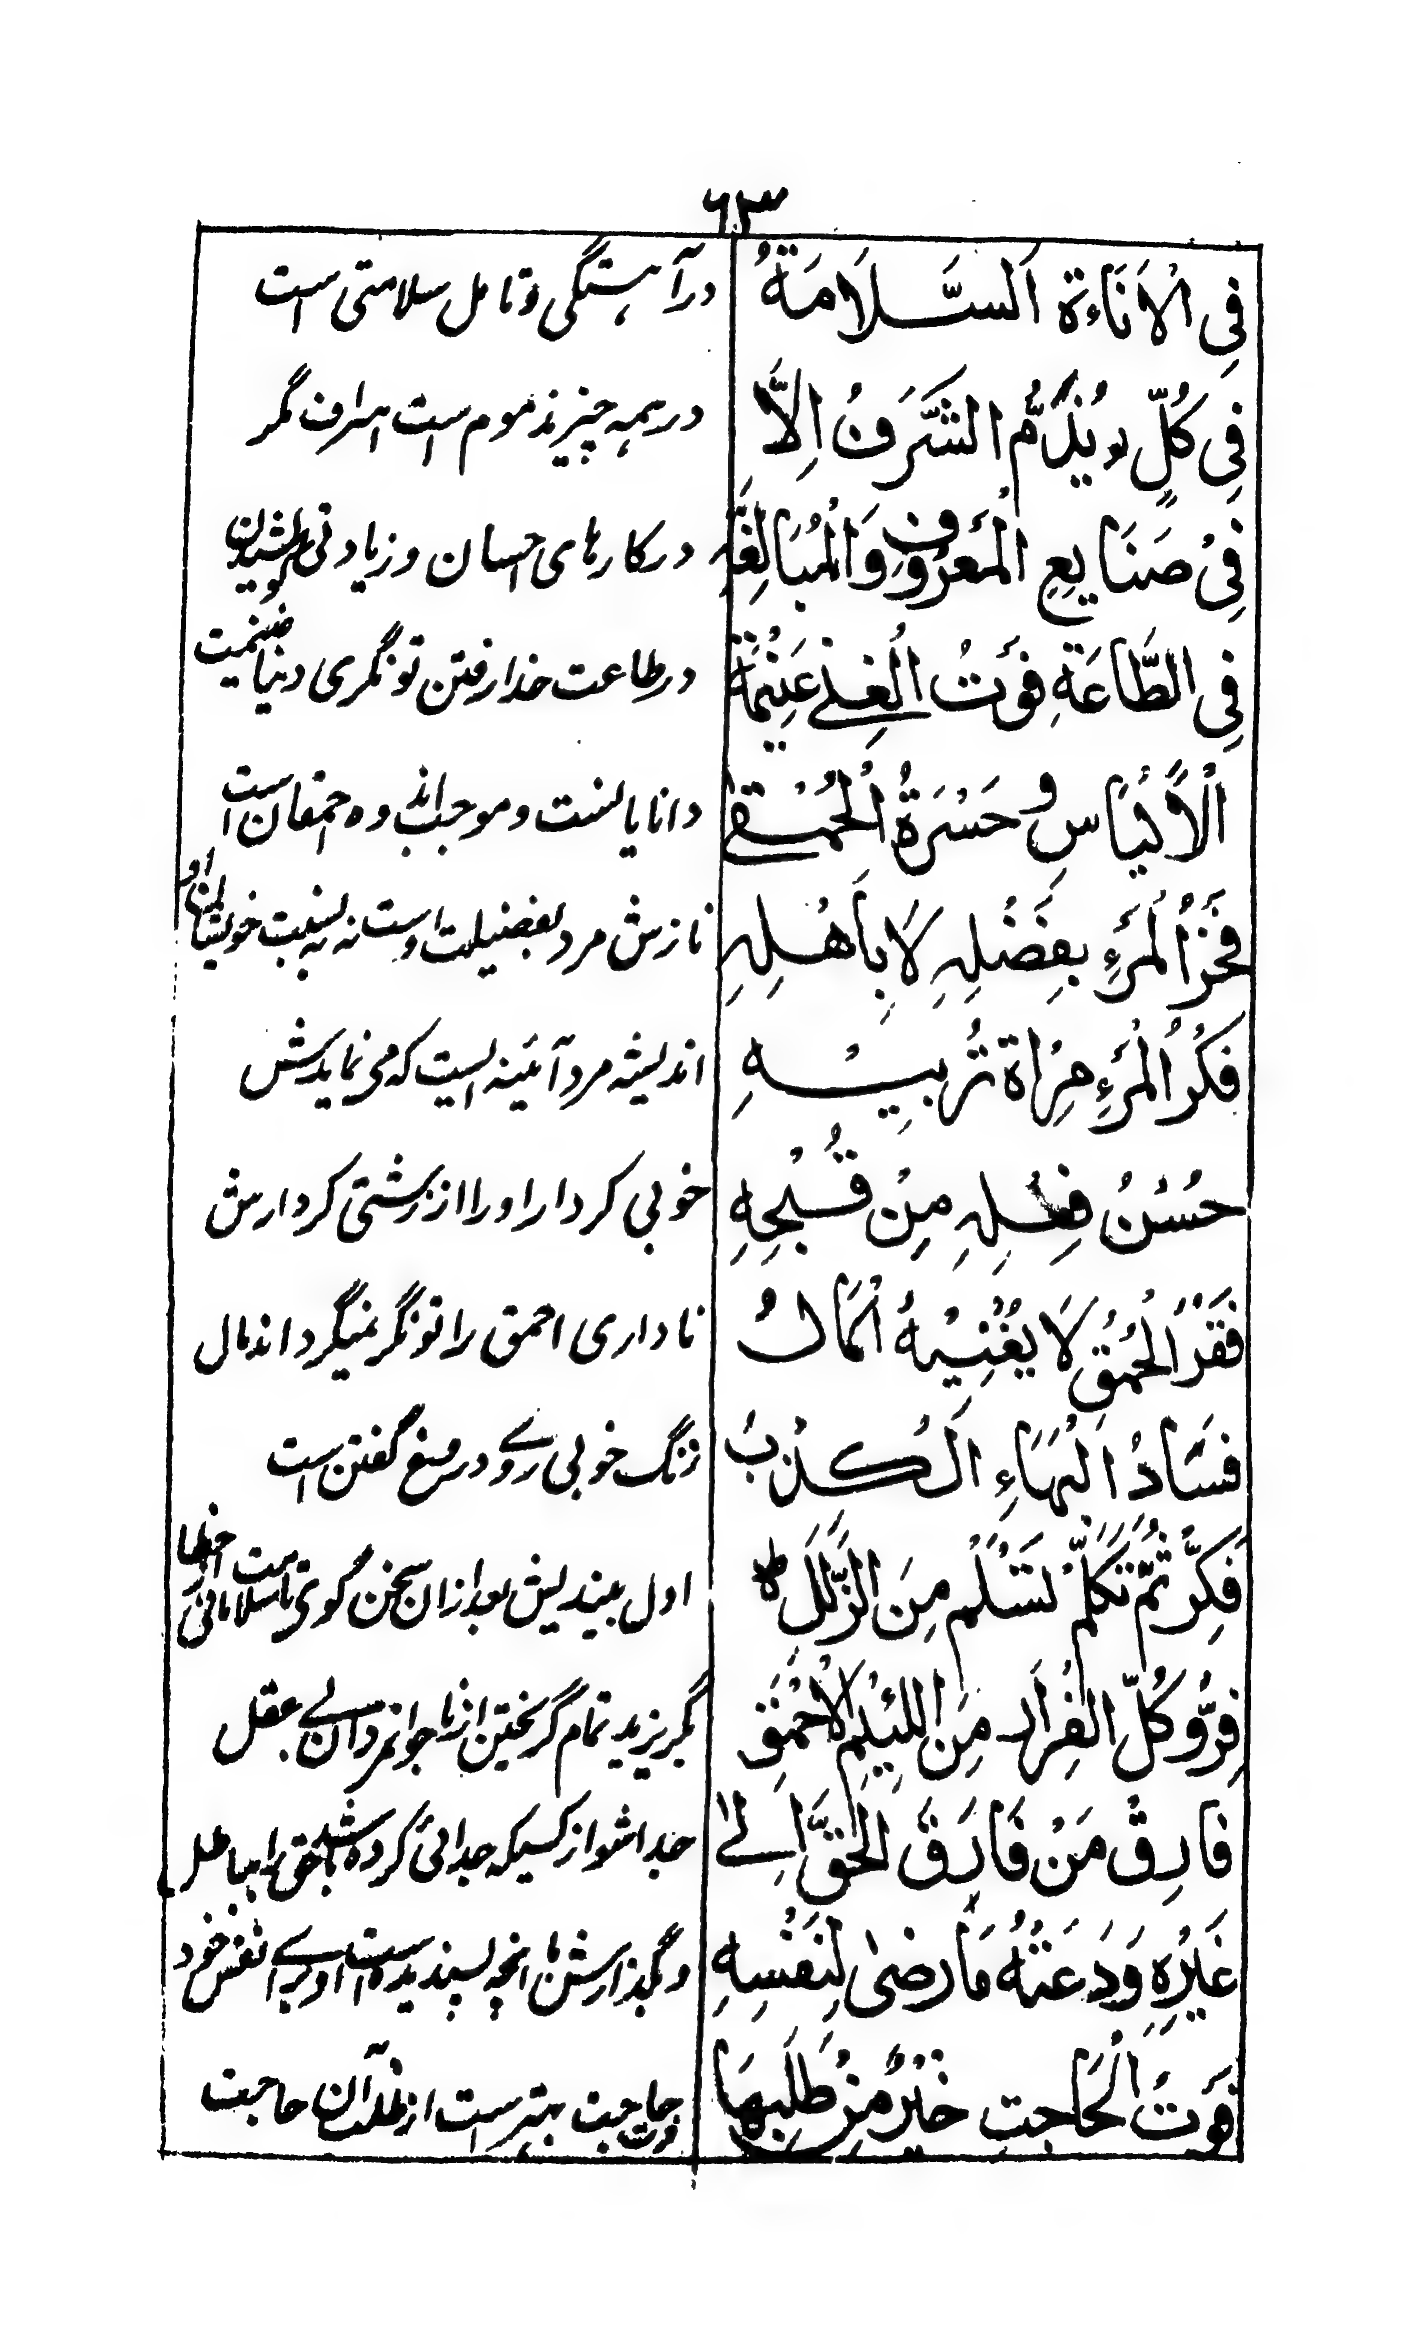 ٦٣
فِى الْاَنَاءَةِ اَلسَّلَامَةُ درآهستگی و تامل سلامتی است
فِى كُلٍّ يُذَمُّ الشَّرَفُ اِلَّا در همه چیز مذموم است اسراف مگر
فِىْ صَنَايِعِ الْمَعْرُوْفِ وَالْمُبَالِغَةِ در کارهای احسان و زیادتی کوشیدن
فِى الطَّاعَةِ فَوْتُ الْغِنٰى غَنِيْمَةُ در طاعت خدا رفتن تونگری دنیا غنیمت
الْاَكْيَاسِ وَ حَسْرَةُ الْحُمْقٰى دانایانست و موجب اندوه احمقان است
فَخْرُ الْمَرْءِ بِفَضْلِهِ لَا بِاَهْلِهِ نازش مرد بفضیلت اوست نه به نسبت خویشان او
فِكْرُ الْمَرْءِ مِرْاةٌ تُرِيْهِ اندیشه مرد آئینه ایست که می نمایدش
حُسْنُ فِعْلِهِ مِنْ قُبْحِهِ خوبی کردار او را از زشتی کردارش
فَقْرُ الْحُمْقِ لَا يُغْنِيْهُ الْمَالُ ناداری احمق را تونگر نمیگرداند مال
فَسَادُ الْبَهَاءِ الْكِذْبُ زنگ خوبی روے دروغ گفتن است
فَكِّرْ ثُمَّ تَكَلَّمْ تَسْلَمْ مِنَ الزَّلَلِ اول بیندیش بعد ازان سخن گوی تا سلامت مانی از خطا
فِرُّو كُلَّ الْفِرَارِ مِنَ اللَّئِيْمِ الْاَحْمَقِ بگریزید تمام گریختن از ناجوانمردان بے عقل
فَارِقْ مَنْ فَارَقَ الْحَقَّ اِلٰى جدا شو از کسیکه جدائی کرده باشد حق را بباطل
غَيْرِهِ وَدَعْهُ مَا رَضٰى لِنَفْسِهِ و بگذارش با انچه پسندیده است او برای نفس خود
فَوْتُ الْحَاجَتِ خَيْرٌ مِنْ طَلَبِهَا فوت حاجت بهتر ست از طلب آن حاجت